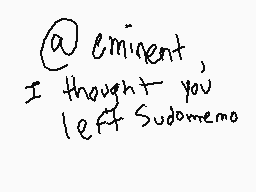 @eminent,
I thought you
left Sudomemo